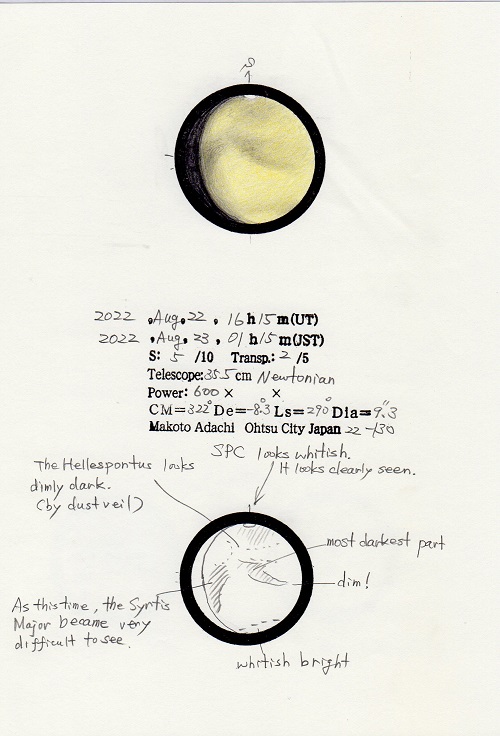 S
2022 , Aug. 22 , 16 h 15 m (UT)
2022 , Aug, 23 , 01 h 15 m (JST)
S: 5 /10 Transp.: 2 /5
Telescope: 35.5 cm Newtonian
Power: 600 × ×
CM=322° De=-8.°3 Ls=290° Dia=9."3
Makoto Adachi Ohtsu City Japan 22-130
SPC looks whitish.
It looks clearly seen.
The Hellespontus looks
dimly dark.
(by dust veil)
most darkest part
dim!
As this time, the Syrtis
Major became very
difficult to see.
whitish bright